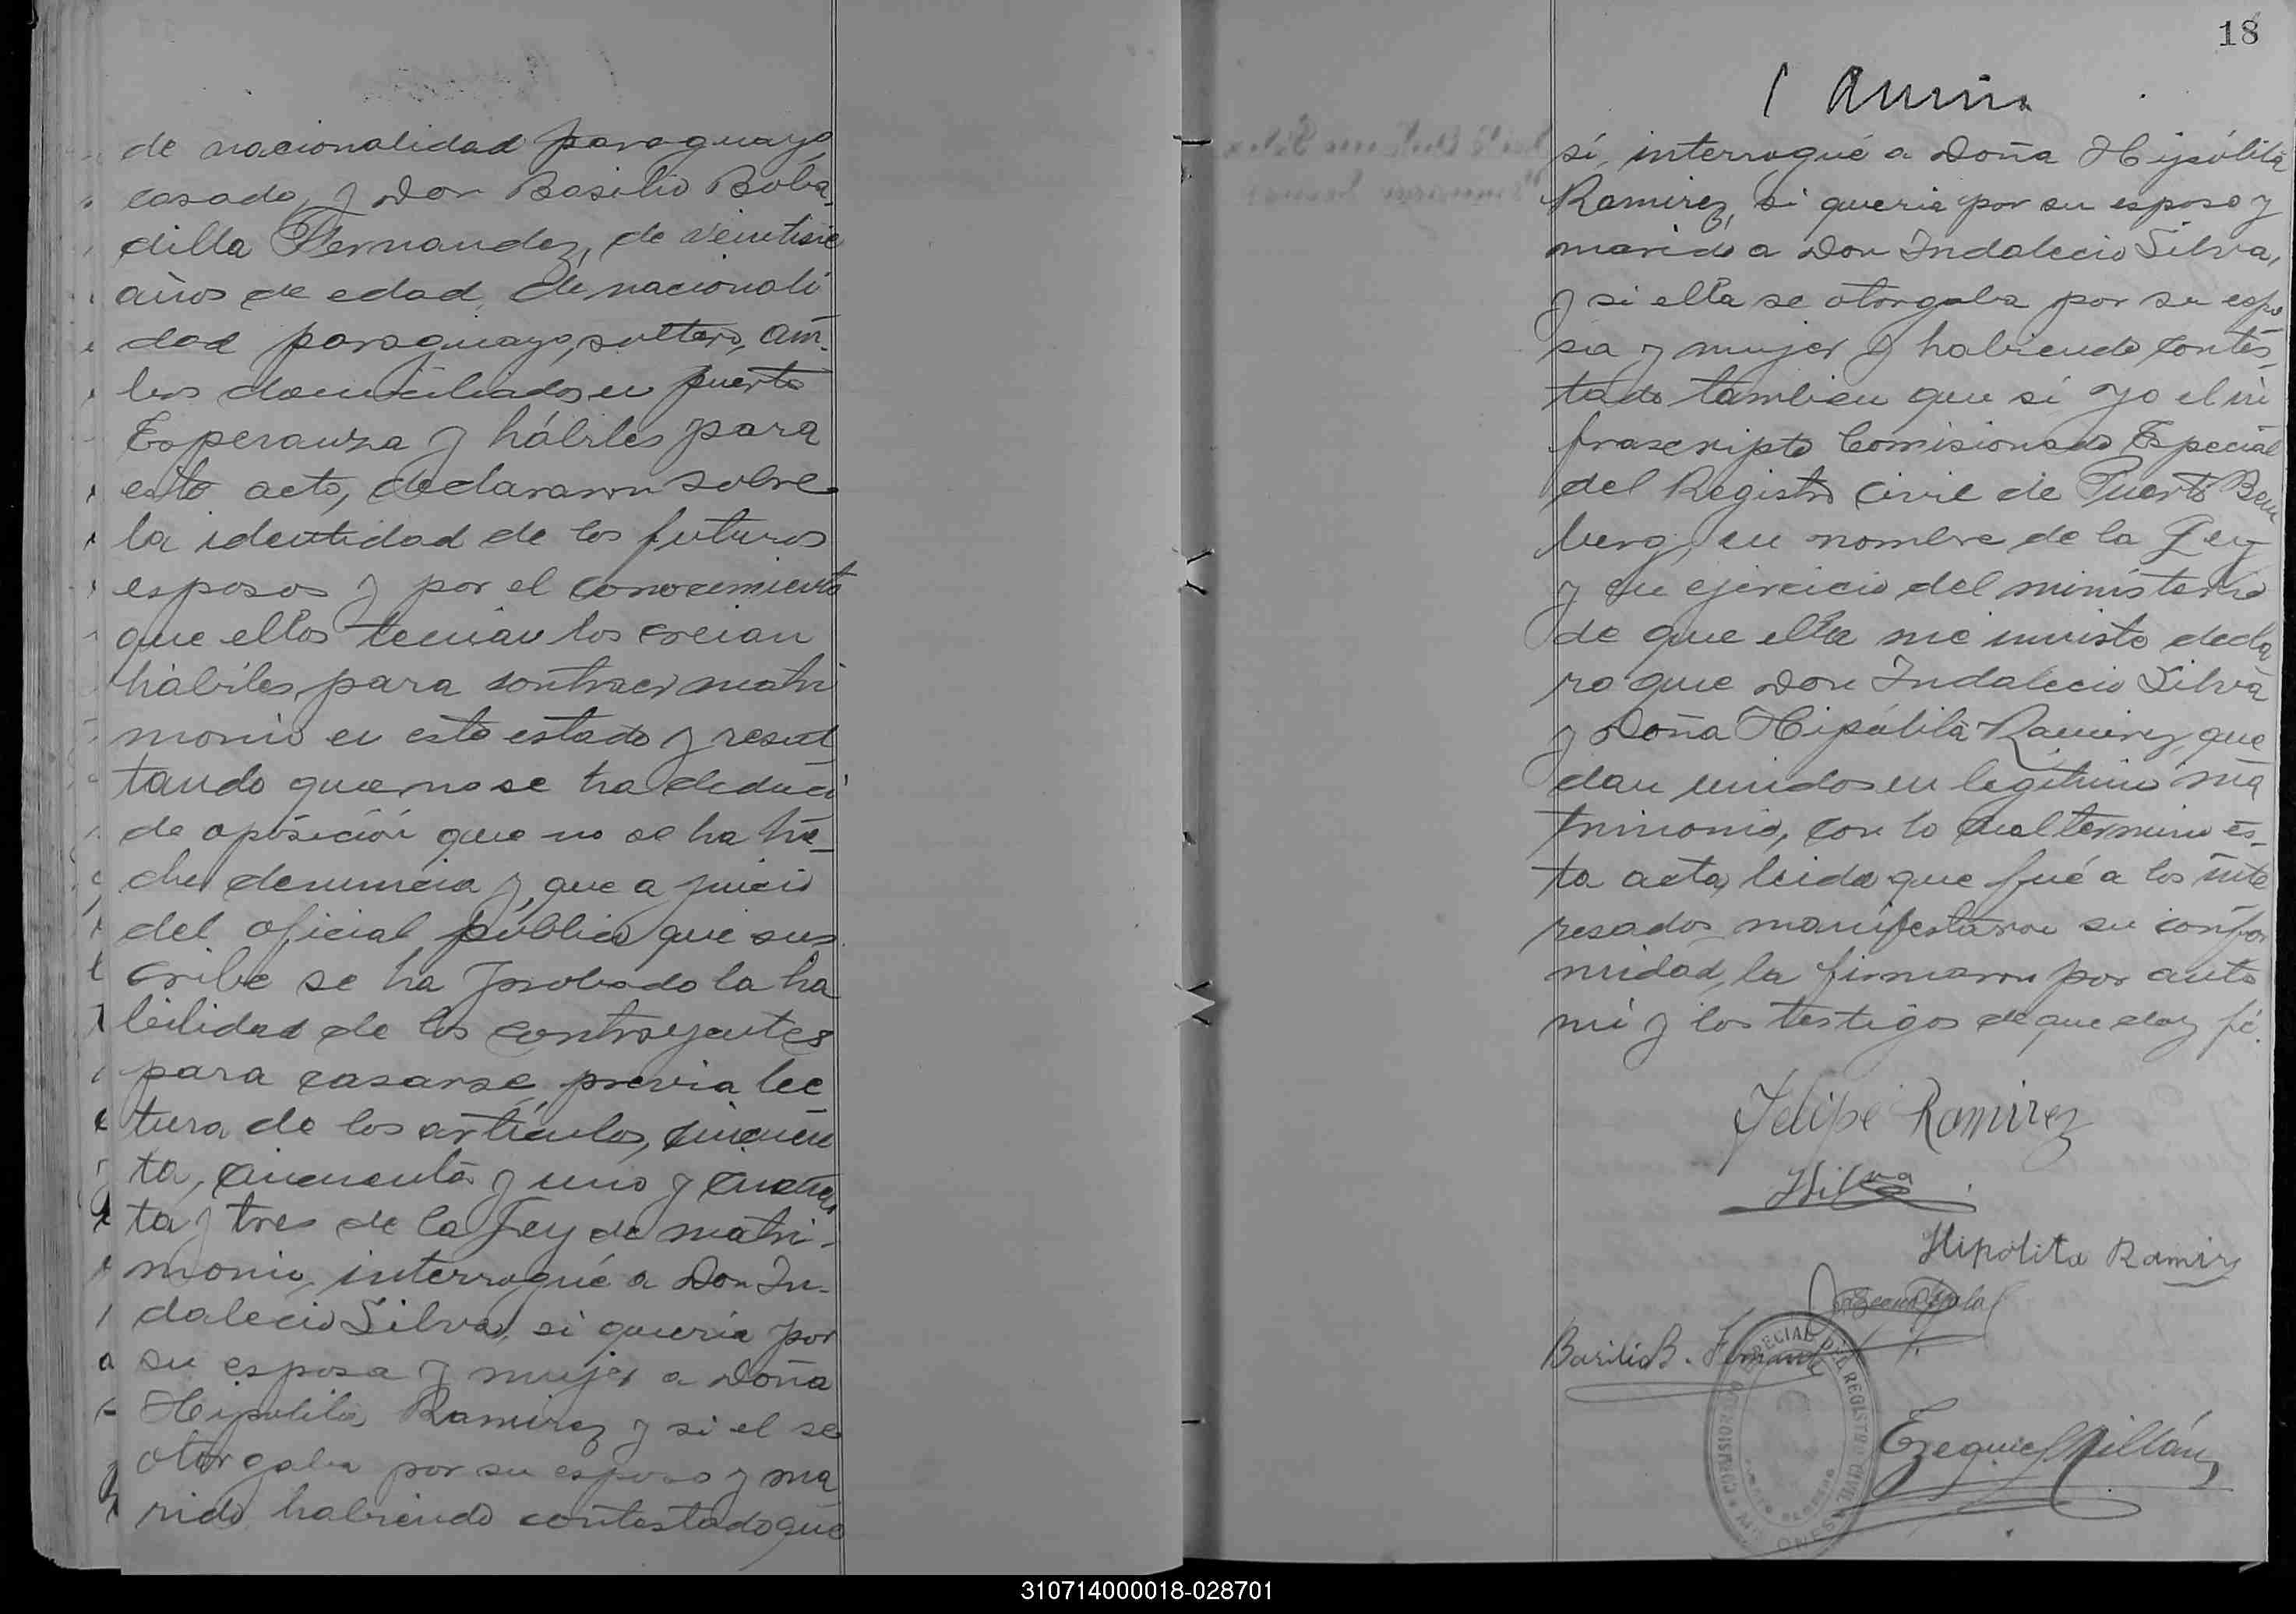 de nacionalidad paraguaya
casado, y Don Basilio Boba
dilla Fernandez, de veintisie
años de edad, de nacionali
dad paraguaya, soltero, am
bos domiciliados en puerto
Esperanza y hábiles para
este acto, declararon sobre
la identidad de los futuros
esposos y por el conocimiento
que ellos tenian los creian
hábiles para contraer matri
monio en este estado y resul
tando que no se ha deduci
do oposición que no se ha he_
cho denuncia y que a juicio
del oficial público que sus
cribe se ha probado la ha
bilidad de los contrayentes
para casarse, previa lec
tura de los artículos, cincuen
ta, cincuenta y uno y cincuen
ta y tres de la Ley de matri-
monio, interrogué a Don In-
dalecio Silva, si queria por
su esposa y mujer a Doña
Hipolita Ramirez y si el se
otorgaba por su esposo y ma
rido habiendo contestado que
18
sí, interrogué a Doña Hipólita
Ramirez, si queria por su esposo y
marido a Don Indalecio Silva,
y si ella se otorgaba por su espo
sa y mujer y habiendo contes_
tado tambien que sí yo el in
frascripto Comisionado Especial
del Registro Civil de Puerto Bem
berg, en nombre de la Ley
y en ejercicio del ministerio
de que ella me inviste decla
ro que Don Indalecio Silva
y Doña Hipólita Ramirez, que
dan unidos en legítimo ma
trimonio, con lo cual termino es_
ta acta, leida que fué a los inte
resados manifestaron su confor
midad, la firmaron por ante
mi y los testigos de que doy fé.
Felipe Ramirez
Silva
Hipólita Ramirz
Basilio B. Fernandez
COMISIONADO ESPECIAL DEL REGISTRO CIVIL
MISIONES
Ezequiel Millán
310714000018-028701